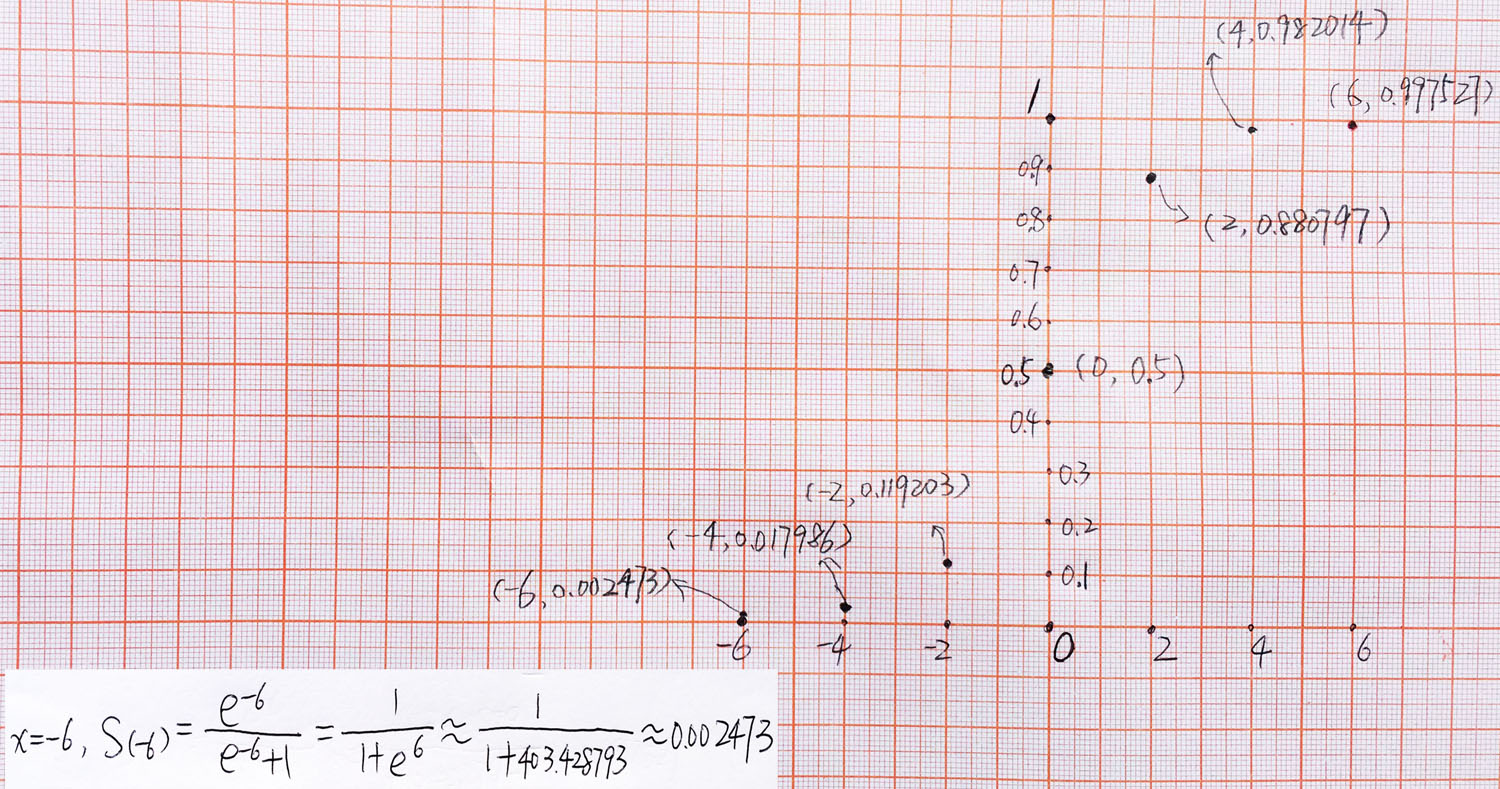 (4,0.982014)
1
(6, 0.997527)
0.9
0.8
(2, 0.880797)
0.7
0.6
0.5 (0, 0.5)
0.4
0.3
(-2, 0.119203)
0.2
(-4, 0.017986)
0.1
(-6, 0.002473)
-6 -4 -2 0 2 4 6
x=-6, S(-6) = e^-6 / (e^-6+1) = 1 / (1+e^6) ≈ 1 / (1+403.428793) ≈ 0.002473